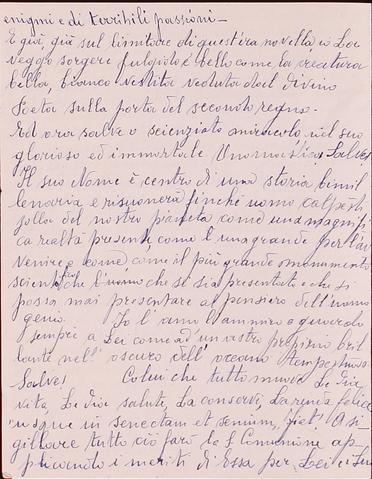 enigmi e di terribili passioni -
E già, già sul limitare di quest'éra novella io La
veggo sorgere fulgido e bello come la creatura
bella, bianco vestita veduta dal divino
Poeta sulla porta del secondo regno.
Ed ora salve o scienziato miracolo nel suo
glorioso ed immortale Onomastico. Salve!
Il suo Nome è centro di una storia bimil
lenaria e risuonerà finché uomo calpesti
zolla del nostro pianeta come una magnifi
ca realtà presente, come una grande per l'av
venire e come il più grande monumento
scientifico che l'uomo che si sia presentato e che si
possa mai presentare al pensiero dell'uomo
genio. Io l'amo l'ammiro e guardo
sempre a Lei come ad un astro proprimo bril
lante nell'oscuro dell'oceano tempestoso.
Salve! Colui che tutto muove Le dia
vita, Le dia salute, La conservi, La renda felice
usque in senectam et senium, fiet! A si
gillare tutto ciò farò la S. Comunione ap
plicando i meriti di Essa per Lei e